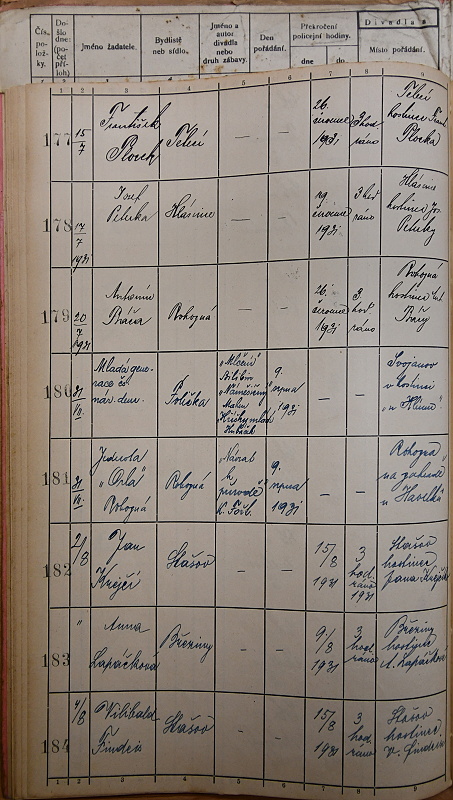 Čís. po- lož- ky.
Do- šlo dne: (po- čet pří- loh)
Jméno žadatele.
Bydliště neb sídlo.
Jméno a autor divadla nebo druh zábavy.
Den pořádání.
Překročení policejní hodiny.
dne
do
Divadla a
Místo pořádání.
1 2 3 4 5 6 7 8 9
177 15/7 František Telecí — — 26. 3 hod Telecí
července ráno hostinec Frant.
1931
178 17/7 1931 Josef Hlásnice — — 3 hod
Petruka 1931 ráno hostinec Jos.
Petruky
179 20/7 1931 Antonín Rohozná — — 26. 3 Rohozná
července hod hostinec Ant.
1931 ráno
180 31/VII. Mladá gene- Polička 9. — — Svojanov
race čs. srpna v hostinci
nár. dem. 1931
181 31/VII. Jednota Rohozná „Návrat 9. — — Rohozná
„Orla" k srpna na zahradě
Rohozná přírodě" 1931 u Havelků
182 2/8 Jan Stašov — — 15/8 3 Stašov
Krejčí 1931 hod. hostinec
ráno Jana Krejčího
1931
183 " Anna Březiny — — 9/8 3 Březiny
Lapáčková 1931 hod. hostinec
ráno A. Lapáčkové
184 4/8 Vilibald Stašov — — 15/8 3 Stašov
Findeis 1931 hod. hostinec
ráno V. Findeis
1 2 3 4 5 6 7 8 9